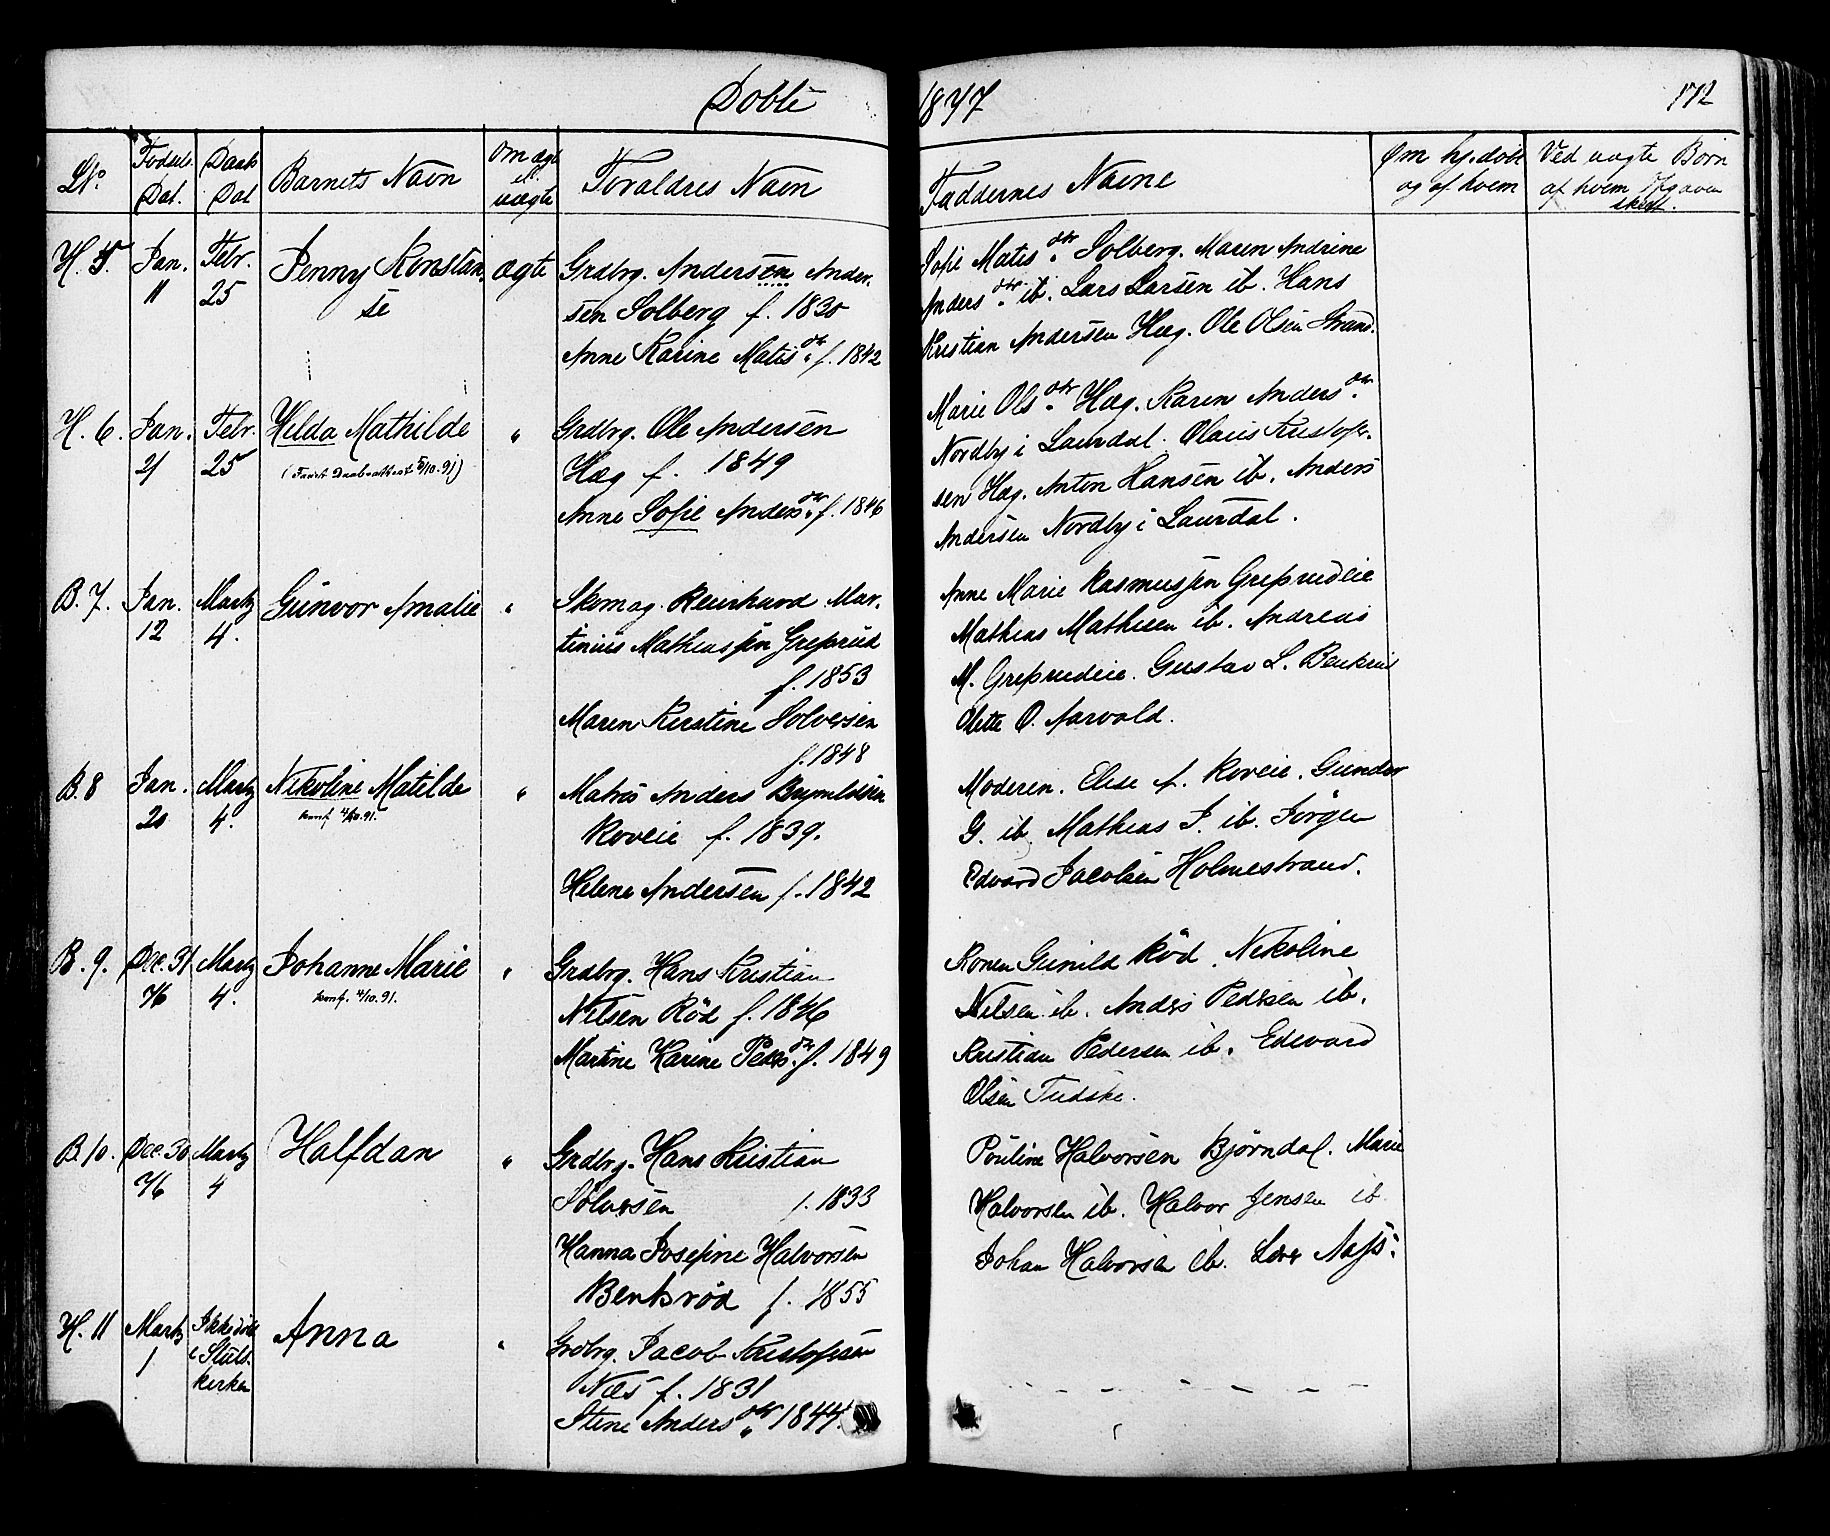 Döbte 1877 172
No. Fødsels Dat. Daab Dat Barnets Navn Om ægte el. uægte Forældres Navn Faddernes Navne Om hj.døbt og af hvem Ved uægte Børn af hvem Opgaven skeet.
H. 5. Jan. 11 Febr. 25 Jenny Konstan-
se
ægte Grdbrg. Andersen Ander-
sen Solberg f. 1830
Anne Karine Matisdtr. f. 1842
Sofie Matisdtr. Solberg. Maren Andrine
Andersdtr. ib. Lars Larsen ib. Hans
Kristian Andersen Hæg. Ole Olsen Strand.
H. 6. Jan. 21 Febr. 25 Hilda Mathilde
(Daabsattest 5/10.91)
" Grdbrg. Ole Andersen
Hæg f. 1849
Anne Sofie Andersdtr. f. 1846
Marie Olsdtr. Hæg. Karen Andersdtr.
Nordby i Laurdal. Olaus Kristofer-
sen Hæg. Anton Hansen ib. Anders
Andersen Nordby i Laurdal.
B. 7. Jan. 12 Marts 4. Gunvor Amalie
" Skomag. Reinhard Mar-
tinius Mathiassen Greprud
f. 1853
Maren Kirstine Solvesen
f. 1848
Anne Marie Rasmussen Greprudeie
Mathias Mathisen ib. Andreas
M. Greprudeie. Gustav L.
O. Aarvold.
B. 8 Jan. 20 Marts 4. Nikoline Matilde
konf. 4/10.91.
" Matros Anders
Roveie f. 1839.
Helene Andersen f. 1842
Moderen. Elise f. Roveie. Gunder
G. ib. Mathias J. ib. Jørgen
Edvard Jacobsen Holmestrand.
B. 9. Dec. 31 76 Marts 4. Johanne Marie
konf. 4/10.91.
" Grdbrg. Hans Kristian
Nilsen Rød f. 1846
Martine Karine Pedersdtr. f. 1849
Konen Gunild Rød. Nikoline
Nilsen ib. Anders Pedersen ib.
Kristian Pedersen ib. Edvard
Olsen
B. 10. Dec. 30 76 Marts 4 Halfdan
" Grdbrg. Hans Kristian
Solvesen f. 1833
Hanna Josefine Halvorsen
Bentsrød f. 1855
Pouline Halvorsen Bjørndal. Marie
Halvorsen ib. Halvor Jensen ib.
Johan Halvorsen ib.
H. 11 Marts 1 Ikke døbt i Stats-
kirken
Anna
" Grdbrg. Jacob Kristofersen
Næs f. 1831
Stine Andersdtr. 1844.